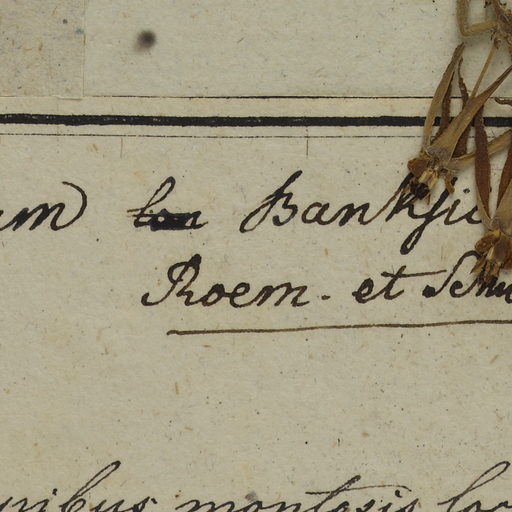 um Banksia
Roem. et Schu
uribus montosis loc